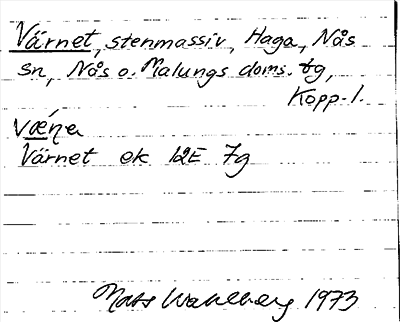 Värnet, stenmassiv, Haga, Nås
sn, Nås o. Malungs doms. tg,
Kopp. l.
væ´ṇa
Värnet ek 12E 7g
Mats Wahlberg 1973